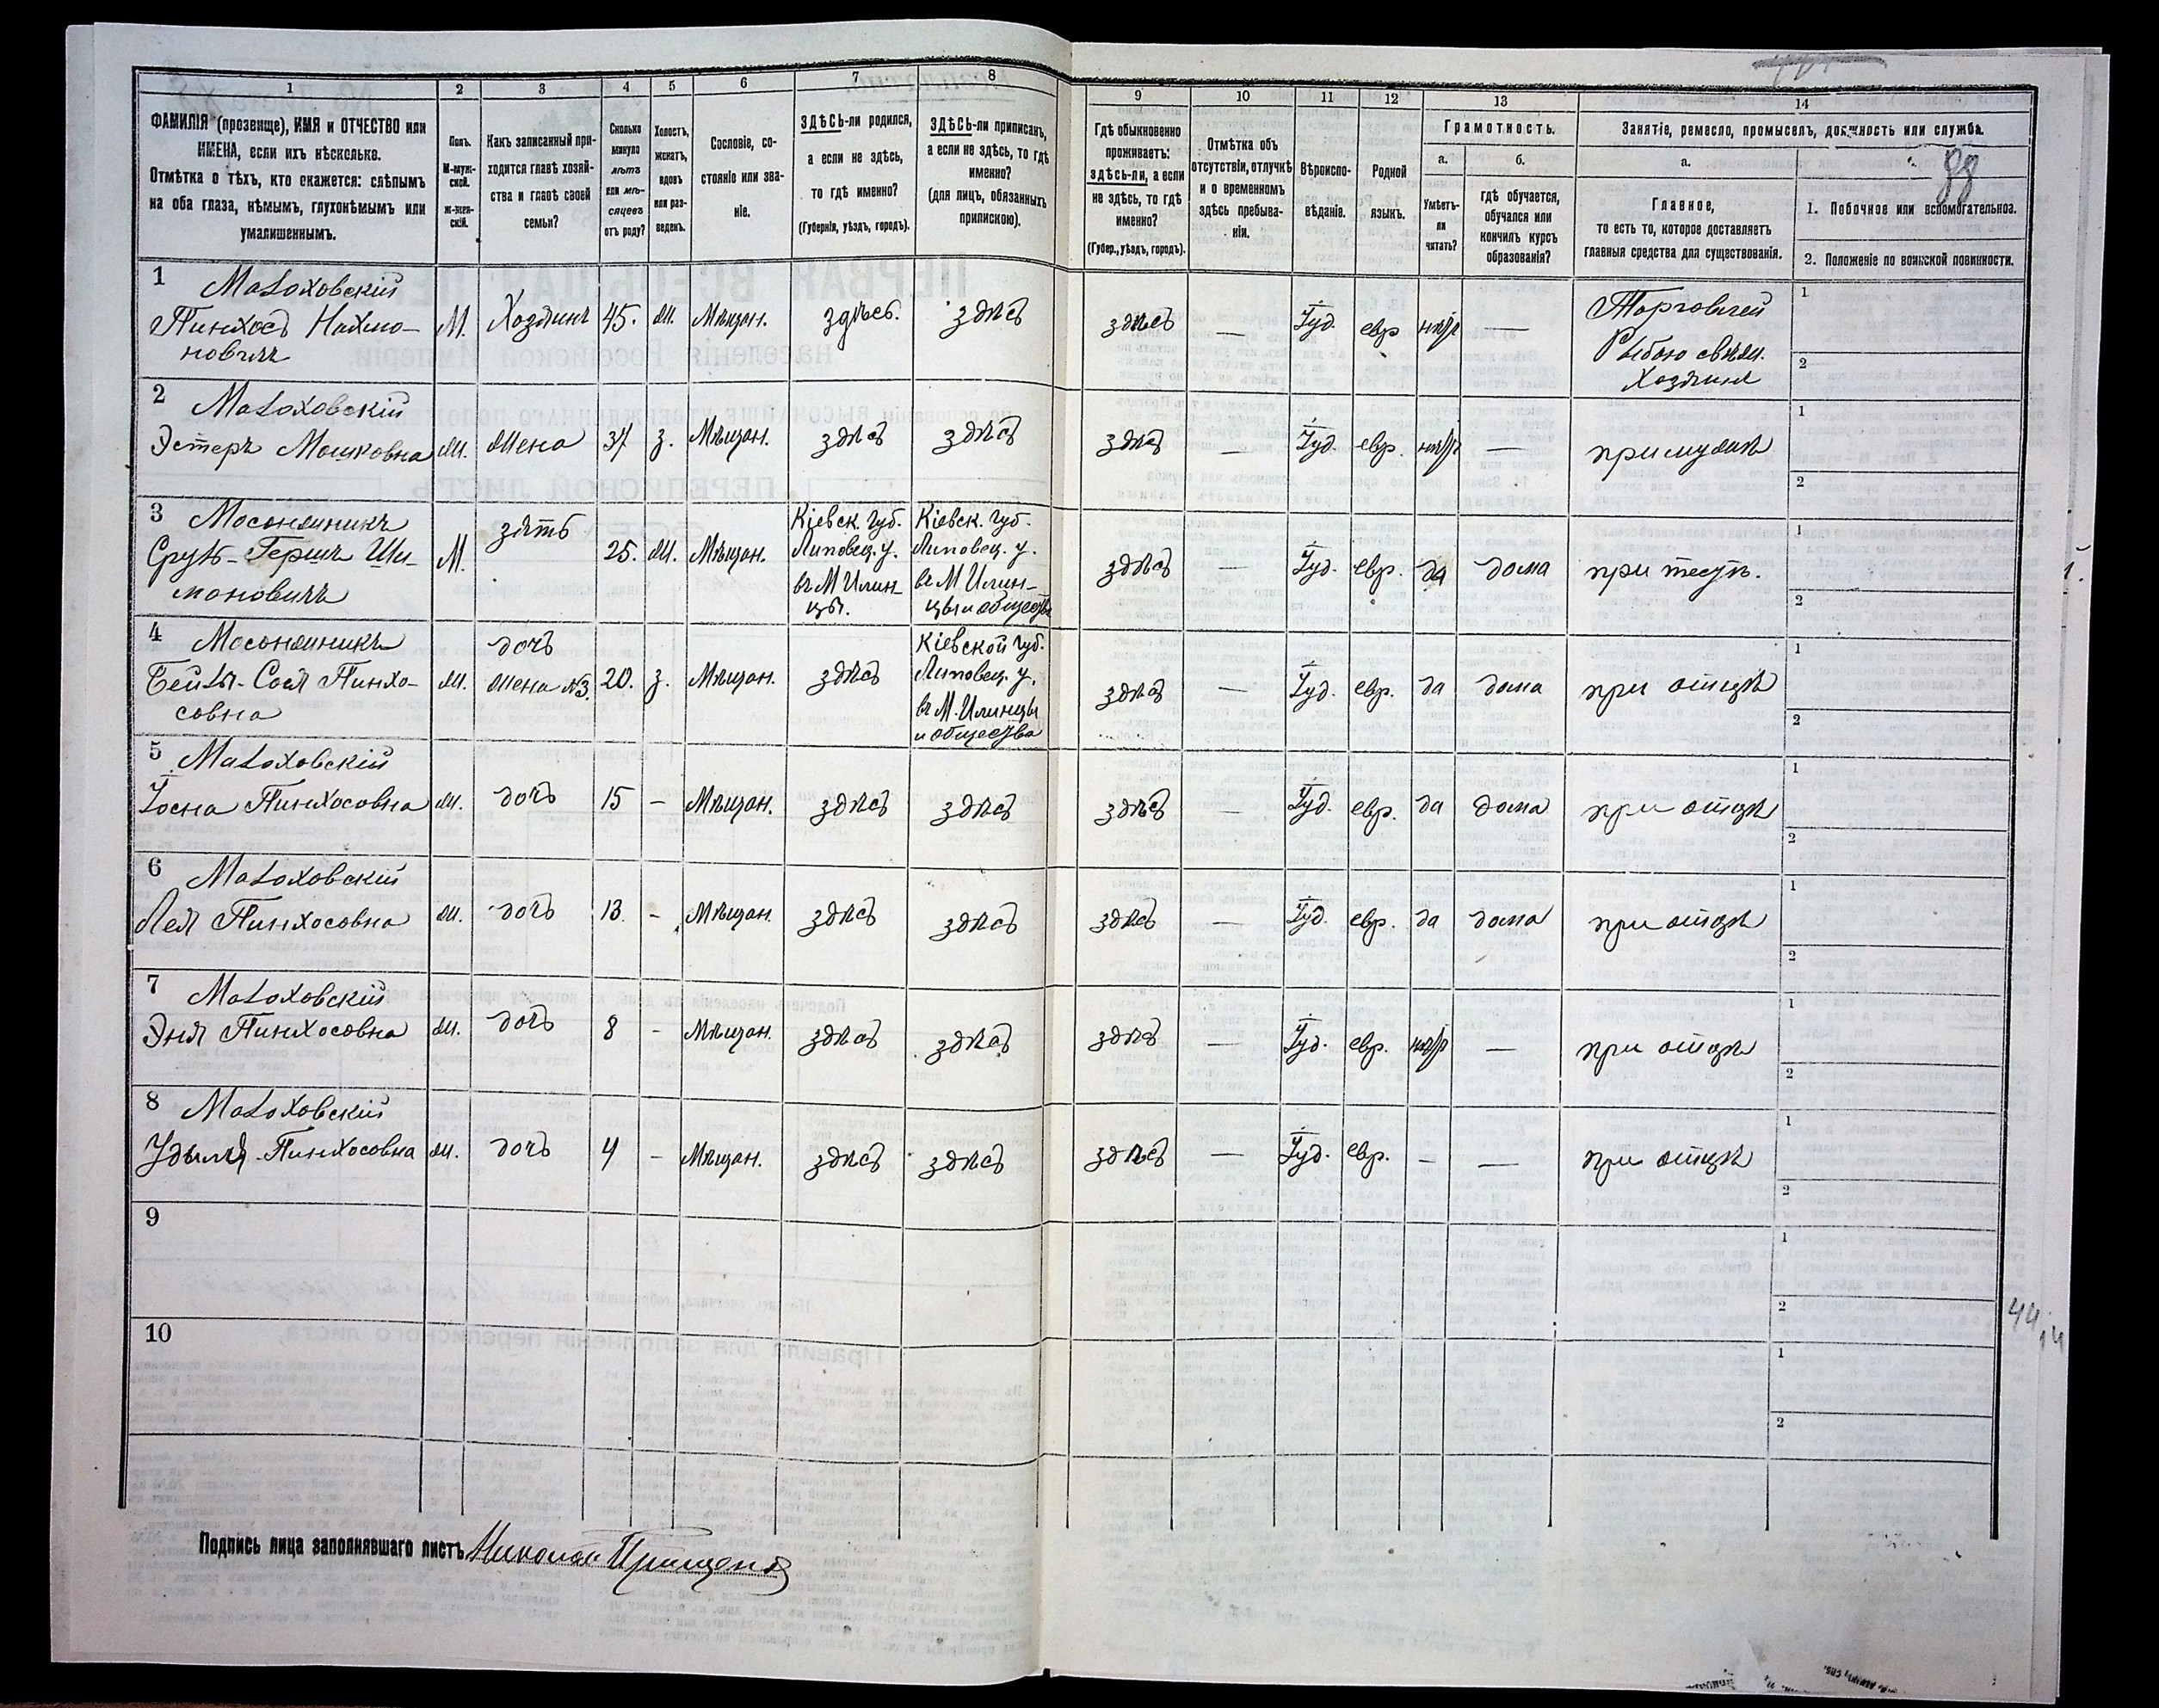 1
2
3
4
5
6
7
8
ФАМИЛІЯ (прозвище), ИМЯ и ОТЧЕСТВО или
ИМЕНА, если ихъ нѣсколько.
Отмѣтка о тѣхъ, кто окажется: слѣпымъ
на оба глаза, нѣмымъ, глухонѣмымъ или
умалишеннымъ.
Полъ.
М-муж-
ской.
Ж-жен-
скій.
Какъ записанный при-
ходится главѣ хозяй-
ства и главѣ своей
семьи?
Сколько
минуло
лѣтъ
или мѣ-
сяцевъ
отъ роду?
Холостъ,
женатъ,
вдовъ
или раз-
веденъ.
Сословіе, со-
стояніе или зва-
ніе.
ЗДѢСЬ-ли родился,
а если не здѣсь,
то гдѣ именно?
(Губернія, уѣздъ, городъ).
ЗДѢСЬ-ли приписанъ,
а если не здѣсь, то гдѣ
именно?
(для лицъ, обязанныхъ
припискою).
9
10
11
12
13
14
Гдѣ обыкновенно
проживаетъ:
здѣсь-ли, а если
не здѣсь, то гдѣ
именно?
(Губер., уѣздъ, городъ).
Отмѣтка объ
отсутствіи, отлучкѣ
и о временномъ
здѣсь пребыва-
ніи.
Вѣроиспо-
вѣданіе.
Родной
языкъ.
Грамотность.
а.
Умѣетъ-
ли
читать?
б.
гдѣ обучается,
обучался или
кончилъ курсъ
образованія?
Занятіе, ремесло, промыселъ, должность или служба.
а.
Главное,
то есть то, которое доставляетъ
главныя средства для существованія.
88
1. Побочное или вспомогательное.
2. Положеніе по воинской повинности.
1 Малоховскій
Пинхосъ Нахмо-
новичъ
М.
Хозяинъ
45.
ж.
Мѣщан.
здѣсь.
здѣсь
здѣсь
—
Іуд.
евр
нѣтъ
—
Торговлей
Рыбою свѣж.
Хозяинъ
1
2
2 Малоховскій
Эстеръ Мошковна
ж.
жена
37
з.
Мѣщан.
здѣсь
здѣсь
здѣсь
—
Іуд.
евр.
нѣтъ
—
при мужѣ
1
2
3 Масонжникъ
Сруль-Гершъ Ши-
моновичъ
М.
зять
25.
ж.
Мѣщан.
Кіевск. Губ.
Липовец. у.
въ М Илин-
цы.
Кіевск. Губ.
Липовец. у.
въ М Илин-
цы и общества
здѣсь
—
Іуд.
евр.
да
дома
при тестѣ.
1
2
4 Масонжникъ
Бейла-Сося Пинхо-
совна
ж.
дочь
жена №3.
20.
з.
Мѣщан.
здѣсь
Кіевской Губ.
Липовец. у.
въ М. Илинцы
и общества
здѣсь
—
Іуд.
евр.
да
дома
при отцѣ
1
2
5 Малоховскій
Хосна Пинхосовна
ж.
дочь
15
—
Мѣщан.
здѣсь
здѣсь
здѣсь
—
Іуд.
евр.
да
дома
при отцѣ
1
2
6 Малоховскій
Лея Пинхосовна
ж.
дочь
13.
-
Мѣщан.
здѣсь
здѣсь
здѣсь
—
Іуд.
евр.
да
дома
при отцѣ
1
2
7 Малоховскій
Эня Пинхосовна
ж.
дочь
8
-
Мѣщан.
здѣсь
здѣсь
здѣсь
—
Іуд.
евр.
нѣтъ
—
при отцѣ
1
2
8 Малоховскій
Удыля Пинхосовна
ж.
дочь
4
-
Мѣщан.
здѣсь
здѣсь
здѣсь
—
Іуд.
евр.
—
—
при отцѣ
1
2
9
1
2
44
10
1
2
Подпись лица заполнявшаго листъ Николай